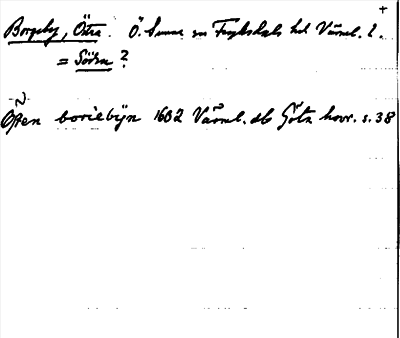 +
Borgeby, Östra. Ö. Sunne sn Fryksdals hd Värml. l.
= Södra?
Öffen boriebÿn 1602 Värml. db Göta hovr. s. 38